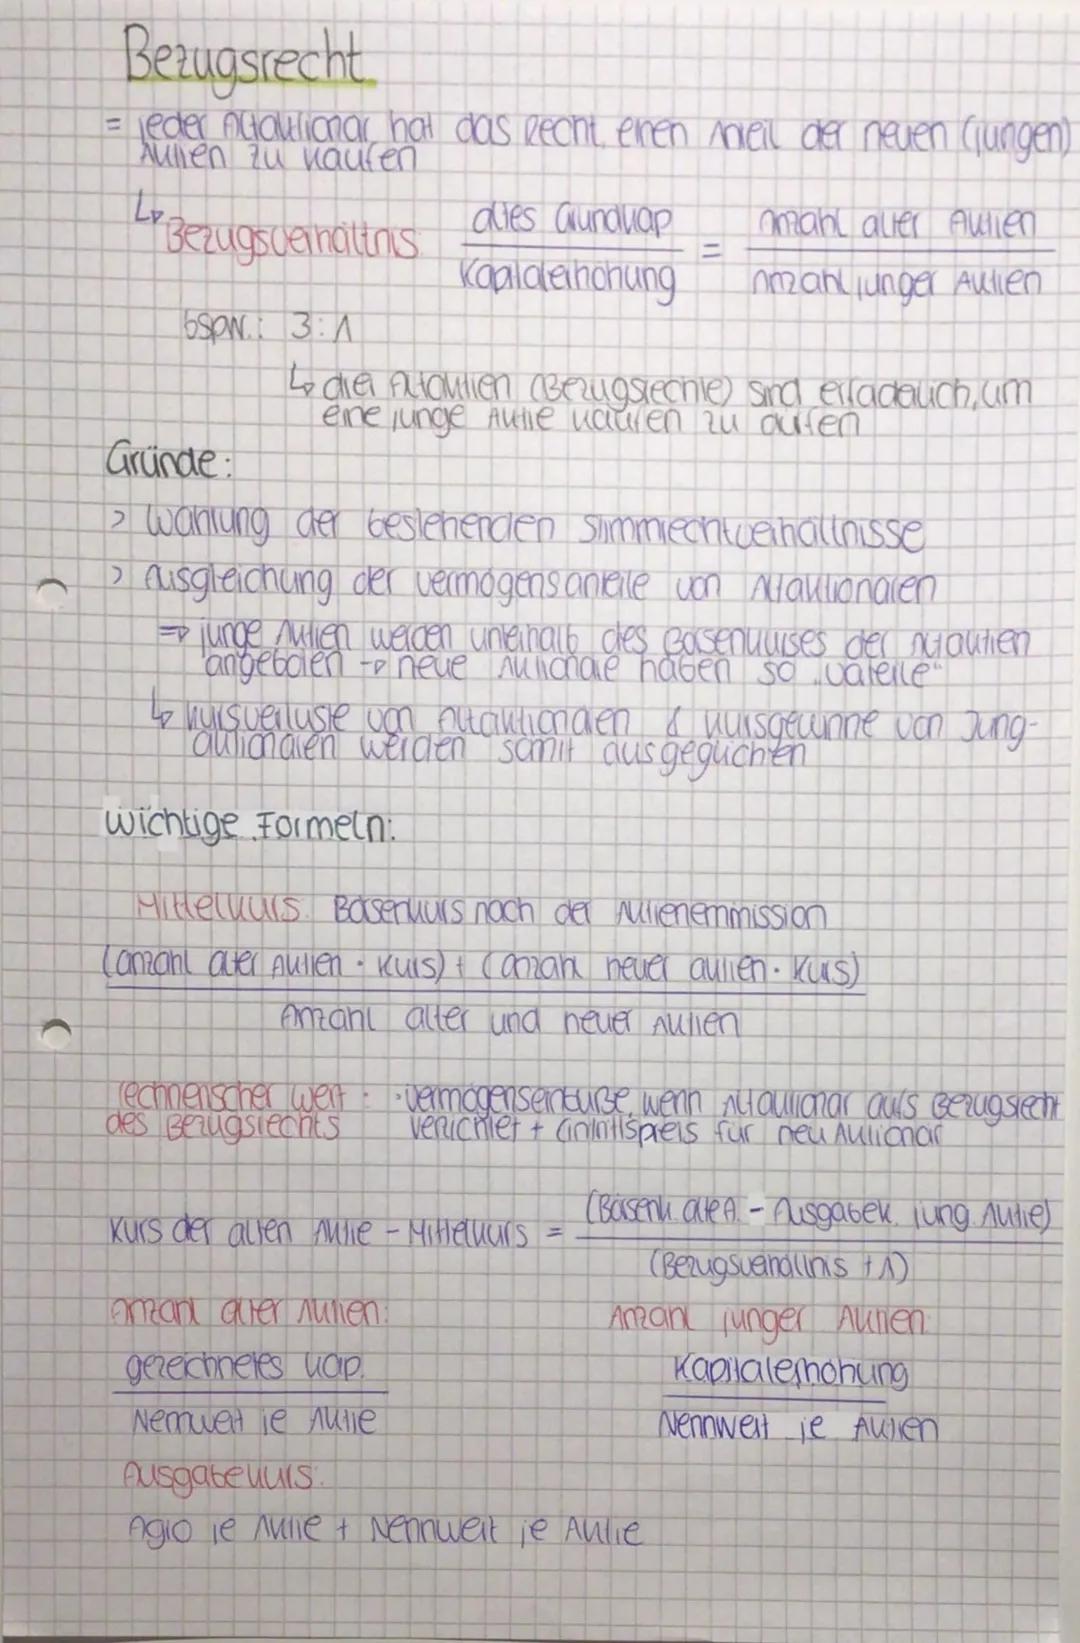 Bezugsrecht
= jeder Altaktionär hat das Recht, einen Anteil der neuen (jungen)
Aktien zu kaufen
↳ Bezugsverhältnis: altes Grundkap / Kapitalerhöhung = Anzahl alter Aktien / Anzahl junger Aktien
bspw.: 3:1
↳ drei Altaktien (Bezugsrechte) sind erforderlich, um
eine junge Aktie kaufen zu dürfen
Gründe:
> Wahrung der bestehenden Stimmrechtverhältnisse
> Ausgleichung der Vermögensanteile von Altaktionären
=> junge Aktien werden unterhalb des Börsenkurses der Altaktien
angeboten -> neue Aktionäre haben so "Vorteile"
↳ Kursverluste von Altaktionären & Kursgewinne von Jung-
aktionären werden somit ausgeglichen
Wichtige Formeln:
Mittelkurs: Börsenkurs nach der Aktienemmission
(Anzahl alter Aktien · Kurs) + (Anzahl neuer Aktien · Kurs)
Anzahl alter und neuer Aktien
rechnerischer Wert : · Vermögenseinbuße, wenn Altaktionär aufs Bezugsrecht
des Bezugsrechts verzichtet + Eintrittspreis für neu Aktionär
Kurs der alten Aktie - Mittelkurs = (Börsenk. alte A. - Ausgabek. jung. Aktie) / (Bezugsverhältnis + 1)
Anzahl alter Aktien: Anzahl junger Aktien:
gezeichnetes Kap. Kapitalerhöhung
Nennwert je Aktie Nennwert je Aktien
Ausgabekurs:
Agio je Aktie + Nennwert je Aktie